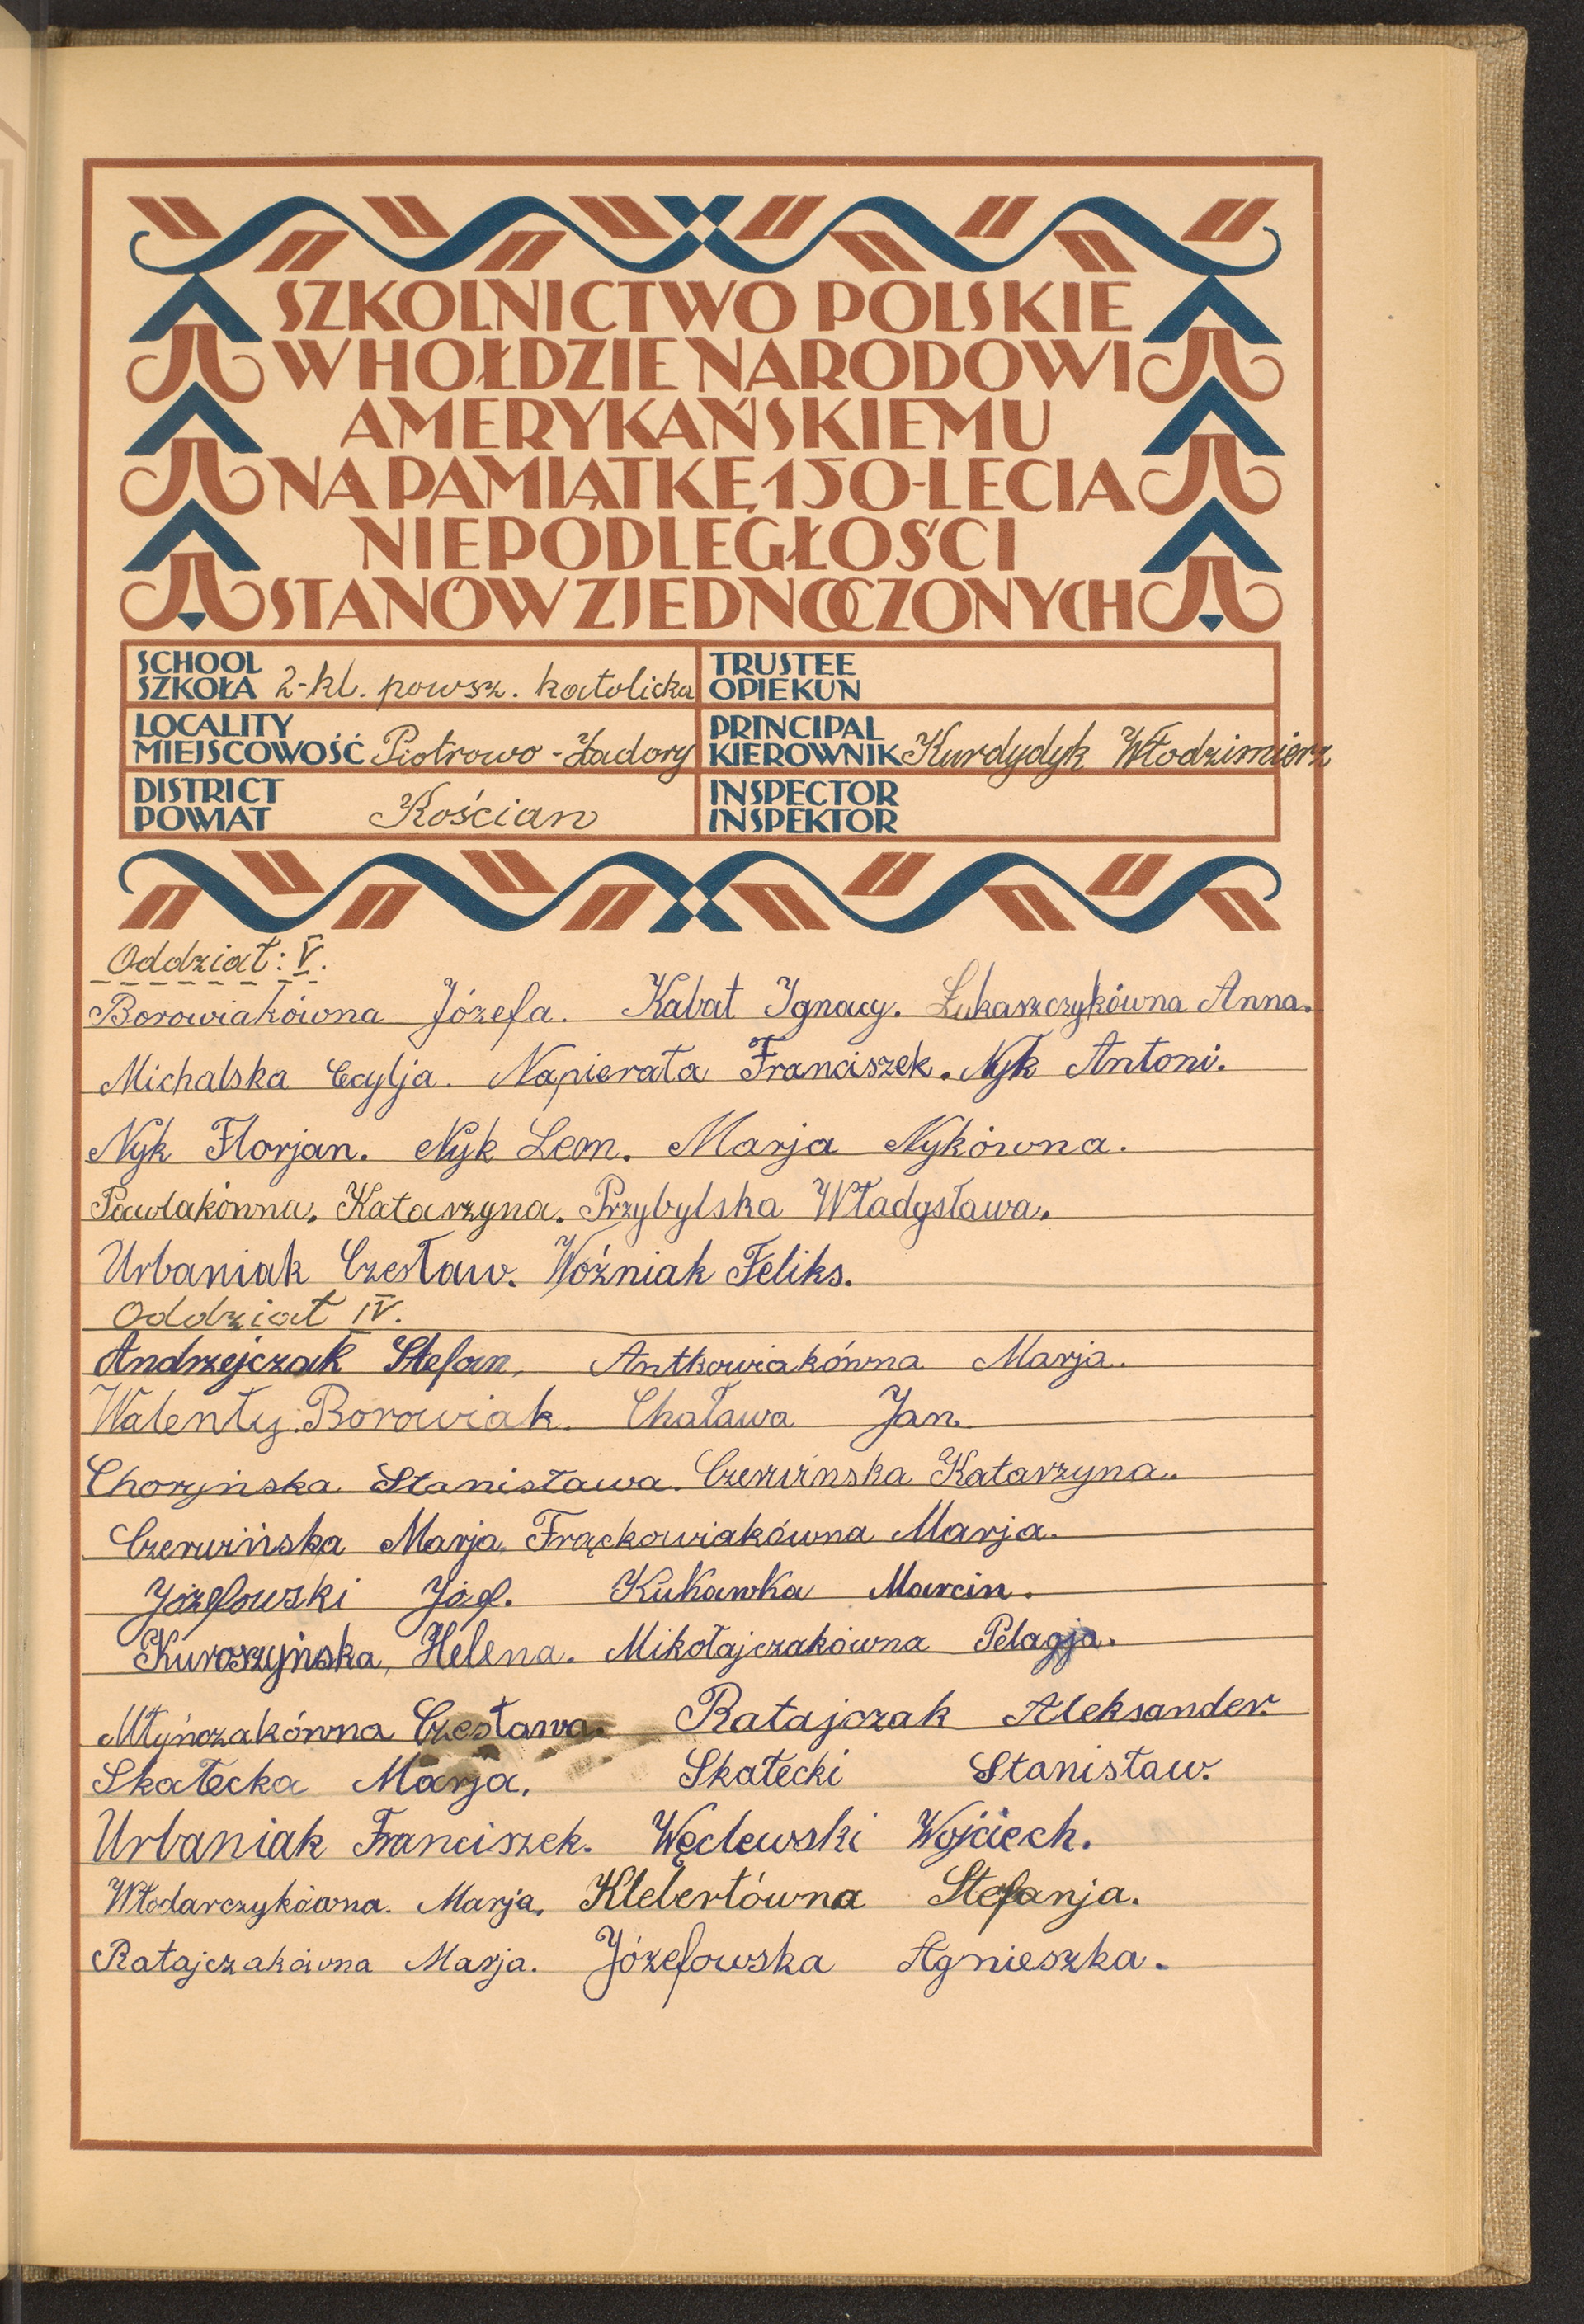 SZKOLNICTWO POLSKIE
W HOŁDZIE NARODOWI
AMERYKAŃSKIEMU
NA PAMIĄTKĘ 150-LECIA
NIEPODLEGŁOŚCI
STANÓW ZJEDNOCZONYCH
SCHOOL
SZKOŁA 2-kl. powsz. katolicka
TRUSTEE
OPIEKUN
LOCALITY
MIEJSCOWOŚĆ Piotrowo-Zadory
PRINCIPAL
KIEROWNIK Kurdydyk Włodzimierz
DISTRICT
POWIAT Kościan
INSPECTOR
INSPEKTOR
Oddział: V.
Borowiakówna Józefa. Kabat Ignacy. Łukaszczykówna Anna.
Michalska Cecylja. Napierała Franciszek. Nyk Antoni.
Nyk Florjan. Nyk Leon. Marja Nykówna.
Pawlakówna, Katarzyna. Przybylska Władysława.
Urbaniak Czesław. Woźniak Feliks.
Oddział IV.
Andrzejczak Stefan, Antkowiakówna Marja.
Walenty Borowiak. Chaława Jan.
Choryńska Stanisława. Czerwinska Katarzyna.
Czerwińska Marja. Frąckowiakówna Marja.
Józefowski Józef. Kukawka Marcin.
Kuroszyńska, Helena. Mikołajczakówna Pelagja.
Młyńczakówna Czesława. Ratajczak Aleksander.
Skałecka Marja. Skałecki Stanisław.
Urbaniak Franciszek. Węclewski Wojciech.
Włodarczykówna. Marja. Klebertówna Stefanja.
Ratajczakówna Marja. Józefowska Agnieszka.